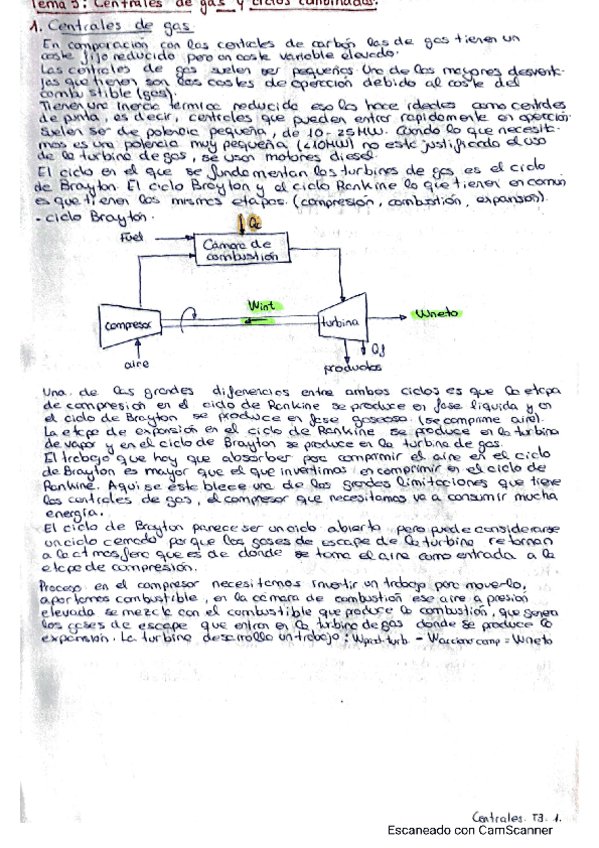 Tema 3: Centrales de gas y ciclos combinados.
1. Centrales de gas.
En comparación con las centrales de carbón las de gas tienen un
coste fijo reducido pero un coste variable elevado.
Las centrales de gas suelen ser pequeñas. Una de las mayores desventa-
jas que tienen son los costes de operción debido al coste del
combustible (gas).
Tienen una inercia térmica reducida eso las hace ideales como centrales
de punta, es decir, centrales que pueden entrar rapidamente en operción
Suelen ser de potencia pequeña, de 10-25MW. Cuando lo que necesit-
mos es una potencia muy pequeña (<10MW) no está justificado el uso
de la turbina de gas, se usan motores diesel.
El ciclo en el que se fundamentan las turbinas de gas es el ciclo
de Brayton. El ciclo Brayton y el ciclo Rankine lo que tienen en común
es que tienen las mismas etapas. (compresión, combustión, expansión).
- ciclo Brayton.
Qc
Fuel
Cámara de
combustión
Wint
compresor
turbina
Wneto
aire
Qf
productos
Una de las grandes diferencias entre ambos ciclos es que la etapa
de compresión en el ciclo de Rankine se produce en fase liquida y en
el ciclo de Brayton se produce en fase gaseosa. (se comprime aire).
La etapa de expansión en el ciclo de Rankine se produce en la turbina
de vapor y en el ciclo de Brayton se produce en la turbina de gas.
El trabajo que hay que absorber para comprimir el aire en el ciclo
de Brayton es mayor que el que invertimos en comprimir en el ciclo de
Rankine. Aqui se establece una de las grandes limitaciones que tiene
las centrales de gas, el compresor que necesitamos va a consumir mucha
energía.
El ciclo de Brayton parece ser un ciclo abierto pero puede considerarse
un ciclo cerrado porque los gases de escape de la turbina retornan
a la atmosfera que es de donde se toma el aire como entrada a la
etapa de compresión.
Proceso: en el compresor necesitamos invertir un trabajo para moverlo,
aportamos combustible, en la cámara de combustión ese aire a presión
elevada se mezcla con el combustible que produce la combustión, que genera
los gases de escape que entran en la turbina de gas donde se produce la
expansión. La turbina desarrolla un trabajo: Wprod.turb - Waccionar comp = Wneto
Centrales. T3. 1.
Escaneado con CamScanner